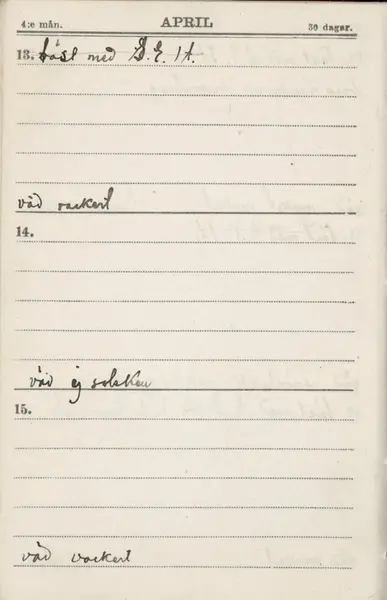 4:e mån. APRIL 30 dagar.
13. läst med S. E. H.
väd vackert
14.
väd ej solsken
15.
väd vackert